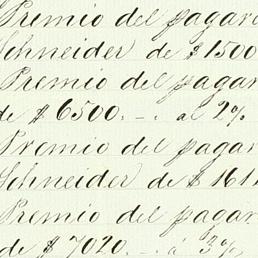 Premio del pagaré
Schneider de $ 1500
Premio del pagar
de $ 6500. - . al 2%
Premio del pagar
Schneider de $ 161
Premio del pagar
de $ 7020. - . á 3%